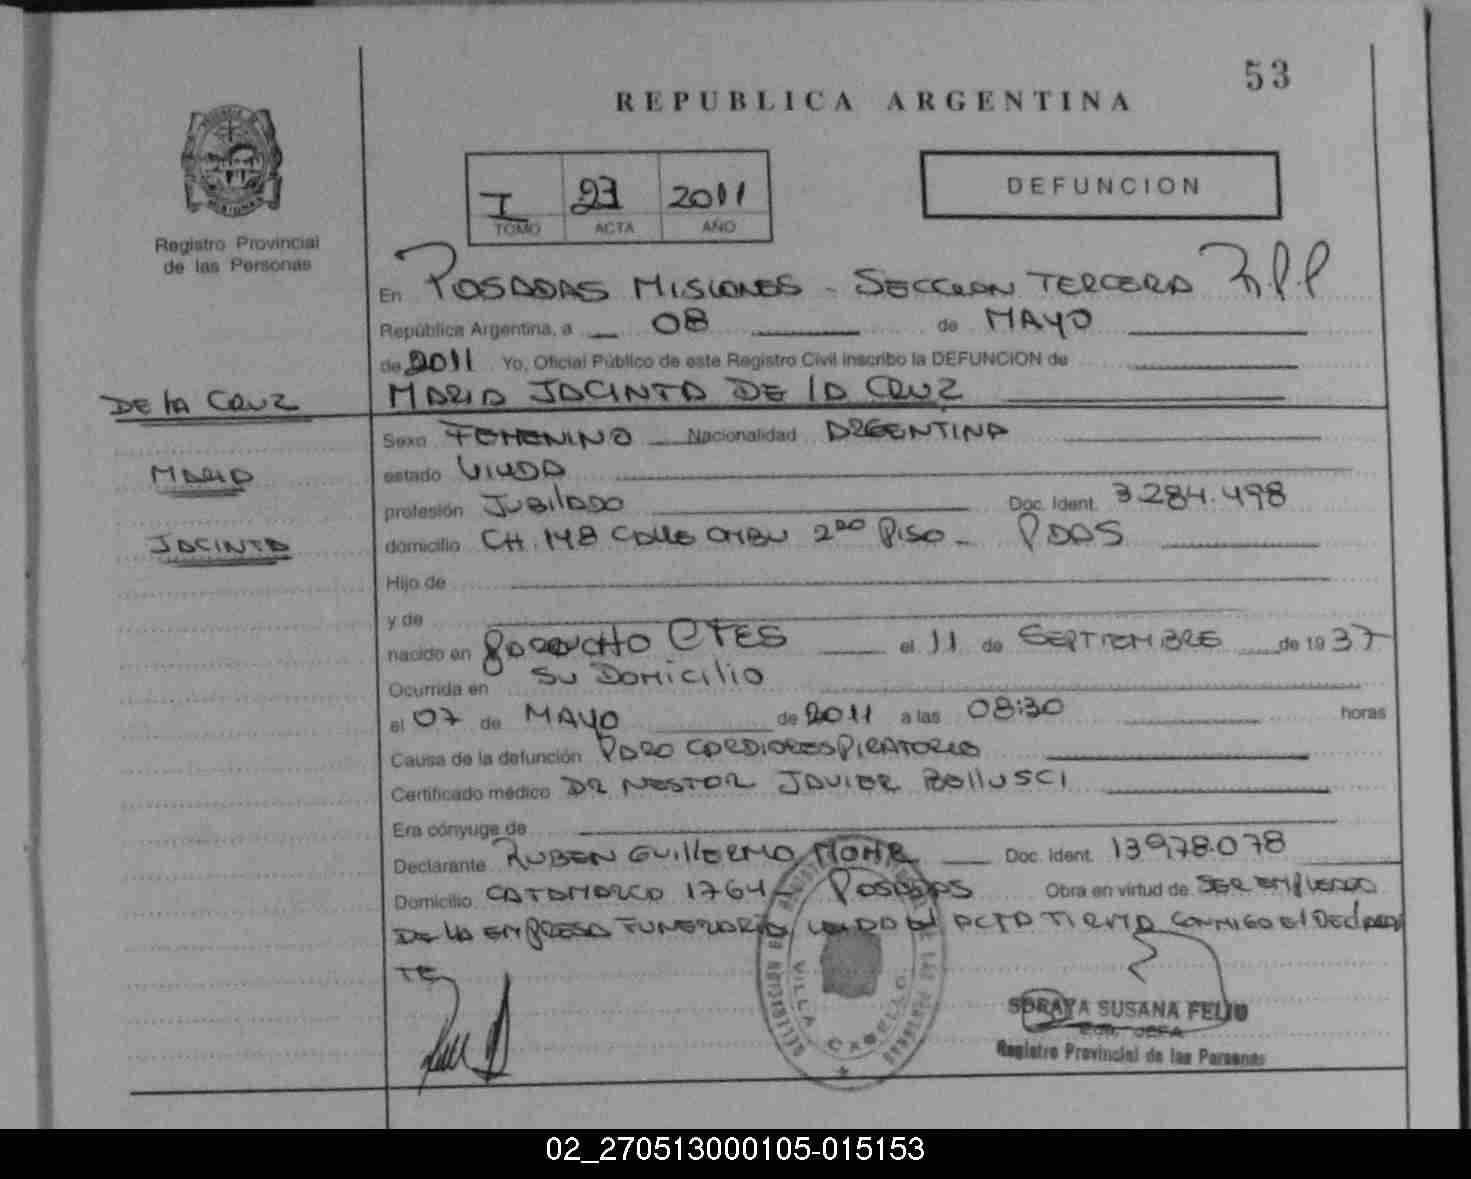 53
REPUBLICA ARGENTINA
I 23 2011
TOMO ACTA AÑO
DEFUNCION
Registro Provincial
de las Personas
En POSADAS MISIONES - SECCION TERCERA R.P.P
República Argentina, a 08 de MAYO
de 2011 Yo, Oficial Público de este Registro Civil inscribo la DEFUNCION de
DE LA CRUZ
MARIA JACINTA DE LA CRUZ
Sexo FEMENINO Nacionalidad ARGENTINA
MARIA
estado VIUDA
profesión JUBILADO Doc. Ident. 3.284.498
JACINTA
domicilio CH. 148 CALLE OMBU 2DO PISO - PDAS
Hijo de
y de
nacido en CTES el 11 de SEPTIEMBRE de 1937
Ocurrida en SU DOMICILIO
el 07 de MAYO de 2011 a las 08:30 horas
Causa de la defunción PARO CARDIORESPIRATORIO
Certificado médico DR NESTOR JAVIER BOLLUSCI
Era cónyuge de
Declarante RUBEN GUILLERMO MOHR Doc. Ident. 13.978.078
Domicilio CATAMARCA 1764 - POSADAS Obra en virtud de SER EMPLEADO
DE LA EMPRESA FUNERARIA LEIDO EL ACTA FIRMA CONMIGO EL DECLARAN
TE
VILLA CABELLO
SORAYA SUSANA FELIU
JEFA
Registro Provincial de las Personas
02_270513000105-015153